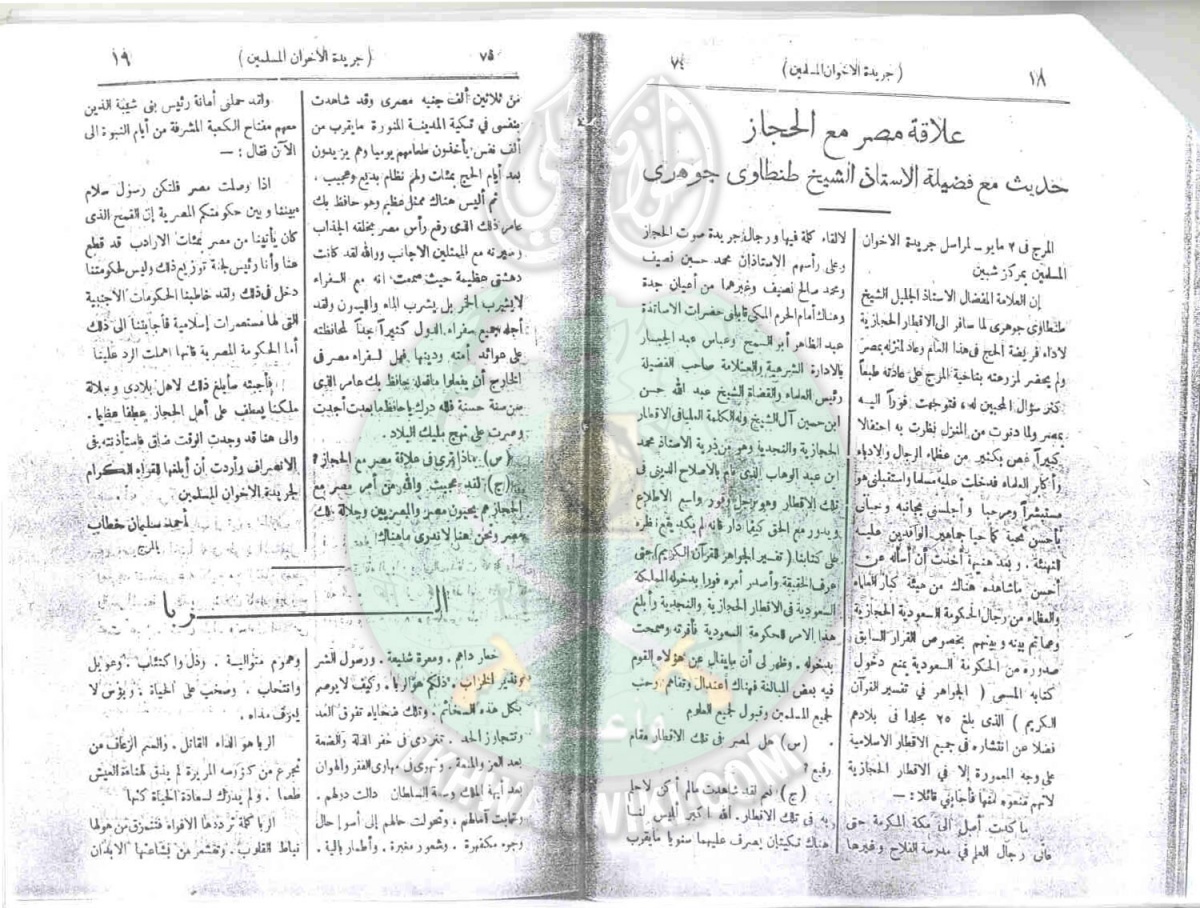 ١٨
( جريدة الاخوان المسلمين )
٧٤
علاقة مصر مع الحجاز
حديث مع فضيلة الاستاذ الشيخ طنطاوى جوهرى
المرج فى ٢ مايو ــ لمراسل جريدة الاخوان
المسلمين بمركز شبين
إن العلامة المفضال الاستاذ الجليل الشيخ
طنطاوى جوهرى لما سافر الى الاقطار الحجازية
لاداء فريضة الحج فى هذا العام وعاد لمنزله بمصر
ولم يحضر لمزرعته بناحية المرج على عادته طبعاً
كثر سؤال المحبين له ، فتوجهت فوراً اليه
بمصر ولما دنوت من المنزل نظرت به احتفالا
كبيراً غص بكثير من عظماء الرجال والادباء
وأكابر العلماء فدخلت عليه مسلما واستقبلنى هو
مستبشراً ومرحبا وأجلسنى بجانبه وحيانى
بأحسن تحية كما حيا جماهير الوافدين عليه
للتهنئة . وبعد هنيهة أخذت أن أسأله عن
أحسن ماشاهده هناك من هيئة كبار العلماء
والعظماء من رجال الحكومة السعودية الحجازية
وعما تم بينه وبينهم بخصوص القرار السابق
صدوره من الحكومة السعودية بمنع دخول
كتابه المسمى ( الجواهر فى تفسير القرآن
الكريم ) الذى بلغ ٢٥ مجلدا فى بلادهم
فضلا عن انتشاره فى جميع الاقطار الاسلامية
على وجه المعمورة إلا فى الاقطار الحجازية
لانهم تمنعوه لمنها فأجابنى قائلا : ــ
ما كدت أصل الى مكة المكرمة حتى
رجال العلم فى مدرسة الفلاح وغيرها
لالقاء كلمة فيها ورجال جريدة صوت الحجاز
وعلى رأسهم الاستاذان محمد حسين نصيف
ومحمد صالح نصيف وغيرهما من أعيان جدة
وهناك أمام الحرم المكى قابلنى حضرات الاساتذة
عبد الظاهر أبو السمح وعباس عبد الجبار
بالادارة الشرعية والعلامة صاحب الفضيلة
رئيس العلماء والقضاة الشيخ عبد الله حسن
ابن حسين آل الشيخ وله الكلمة العليا فى الاقطار
الحجازية والنجدية وهو من ذرية الاستاذ محمد
ابن عبد الوهاب الذى قام بالاصلاح الدينى فى
تلك الاقطار وهو رجل وقور واسع الاطلاع
ويدور مع الحق كيفما دار فانه لم يكد يقع نظره
على كتابنا ( تفسير الجواهر للقرآن الكريم ) حتى
عرف الحقيقة وأصدر أمره فورا بدخوله المملكة
السعودية فى الاقطار الحجازية والنجدية وأبلغ
هذا الامر للحكومة السعودية فأقرته وسمحت
بدخوله . وظهر لى أن مايقال عن هؤلاء القوم
فيه بعض المبالغة فهناك أعتدال وتفاهم وحب
لجميع المسلمين وقبول لجميع العلوم
. ( س ) هل لمصر فى تلك الاقطار مقام
رفيع ؟
( ج ) نعم لقد شاهدت مالم أكن لاحلم
به فى تلك الاقطار . الله اكبر أليس لنا
هناك تكيتان يصرف عليهما سنويا مايقرب
٧٥
( جريدة الاخوان المسلمين )
١٩
من ثلاثين ألف جنيه مصرى وقد شاهدت
بنفسى فى تكية المدينة المنورة مايقرب من
ألف نفس يأخذون طعامهم يوميا وهم يزيدون
بعد أيام الحج بمئات ولهم نظام بديع وعجيب .
ثم أليس هناك ممثل عظيم وهو حافظ بك
عامر ذلك الذى رفع رأس مصر بخلقه الجذاب
وسيرته مع الممثلين الاجانب ووالله لقد كانت
دهشتى عظيمة حيث سمعت انه مع السفراء
لايشرب الخمر بل يشرب الماء والليمون ولقد
أجله جميع سفراء الدول كثيراً جداً لمحافظته
على عوائد أمته ودينها فهل لسفراء مصر فى
الخارج أن يفعلوا مافعله حافظ بك عامر الذى
سن سنة حسنة فلله درك ياحافظ
وصرت على نهج مليك البلاد .
( س ) ماذا ترى فى علاقة مصر مع الحجاز ؟
( ج ) لقد عجبت والله من أمر مصر مع
الحجاز هم يحبون مصر والمصريين وجلالة ملك
مصر ونحن هنا لا ندرى ماهناك
ولقد حملنى أمانة رئيس بنى شيبة الذين
معهم مفتاح الكعبة المشرفة من أيام النبوة الى
الآن فقال : ــ
اذا وصلت مصر فلتكن رسول سلام
بيننا وبين حكومتكم المصرية إن القمح الذى
كان يأتينا من مصر بمئات الارادب قد قطع
عنا وأنا رئيس لجنة توزيع ذلك وليس لحكومتنا
دخل فى ذلك ولقد خاطبنا الحكومات الاجنبية
التى لها مستعمرات إسلامية فأجابتنا الى ذلك
أما الحكومة المصرية فانها اهملت الرد علينا
فأجبته سأبلغ ذلك لاهل بلادى وجلالة
ملكنا يعطف على أهل الحجاز عطفا عظيما .
والى هنا قد وجدت الوقت ضاق فاستأذنته فى
الانصراف وأردت أن أبلغها للقراء الكرام
لجريدة الاخوان المسلمين
أحمد سليمان خطاب
بالمرج
الربا
خطر داهم . ومعرة شنيعة . ورسول الشر
ونذير الخراب . ذلكم هو الربا . وكيف لا يوصم
بكل هذه السخائم . وتلك ضحاياه تفوق العد
وتتجاوز الحد . تتردى فى حفر الذلة والضعة
بعد العز والمنعة . وتهوى فى مهاوى الفقر والهوان
بعد أبهة الملك وسعة السلطان دالت دولهم .
وخابت آمالهم . وتحولت حالهم إلى أسوإ حال
وجوه مكفهرة . وشعور مغبرة . وأطمار بالية .
وهموم متوالية . وذل واكتئاب . وعويل
وانتحاب . وسخب على الحياة . وبؤس لا
يعرف مداه .
الربا هو الداء القاتل . والسم الزعاف من
تجرع من كؤوسه المريرة لم يذق لهناءة العيش
طعما . ولم يدرك لسعادة الحياة كنها
الربا كلمة ترددها الافواه فتتمزق من هولها
نياط القلوب . وتقشعر من بشاعتها الابدان
وأعدوا
IKHWANWIKI.COM